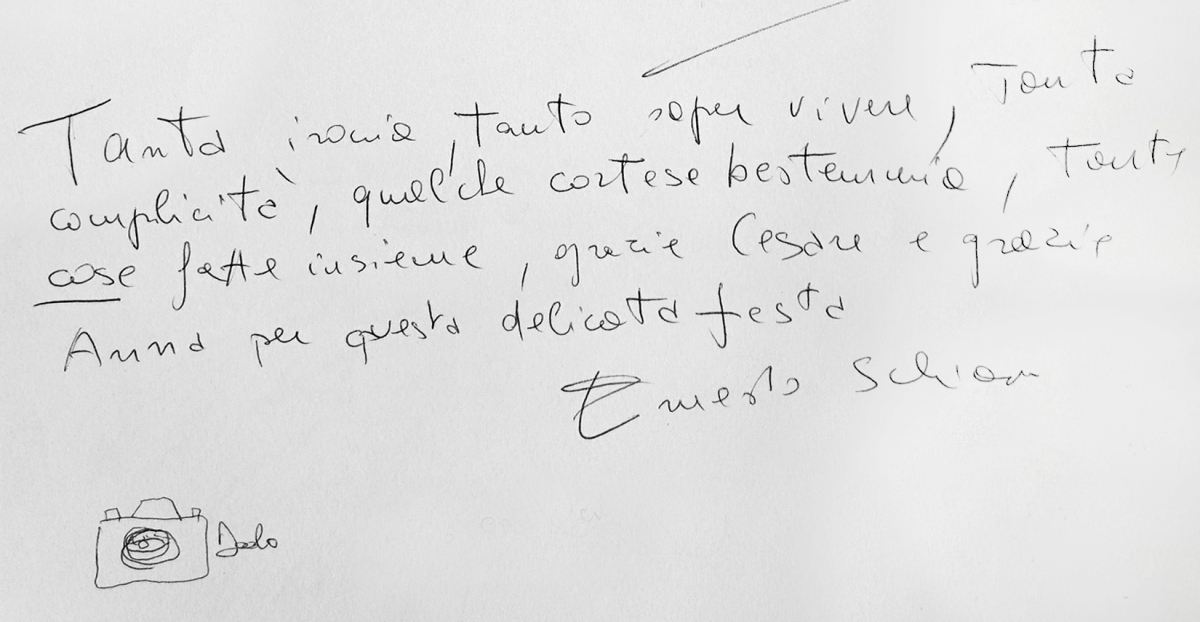 Tanta ironia, tanto saper vivere, Tanta
complicità, qualche cortese bestemmia, Tante
cose fatte insieme, grazie Cesare e grazie
Anna per questa delicata festa
Ernesto
Dodo